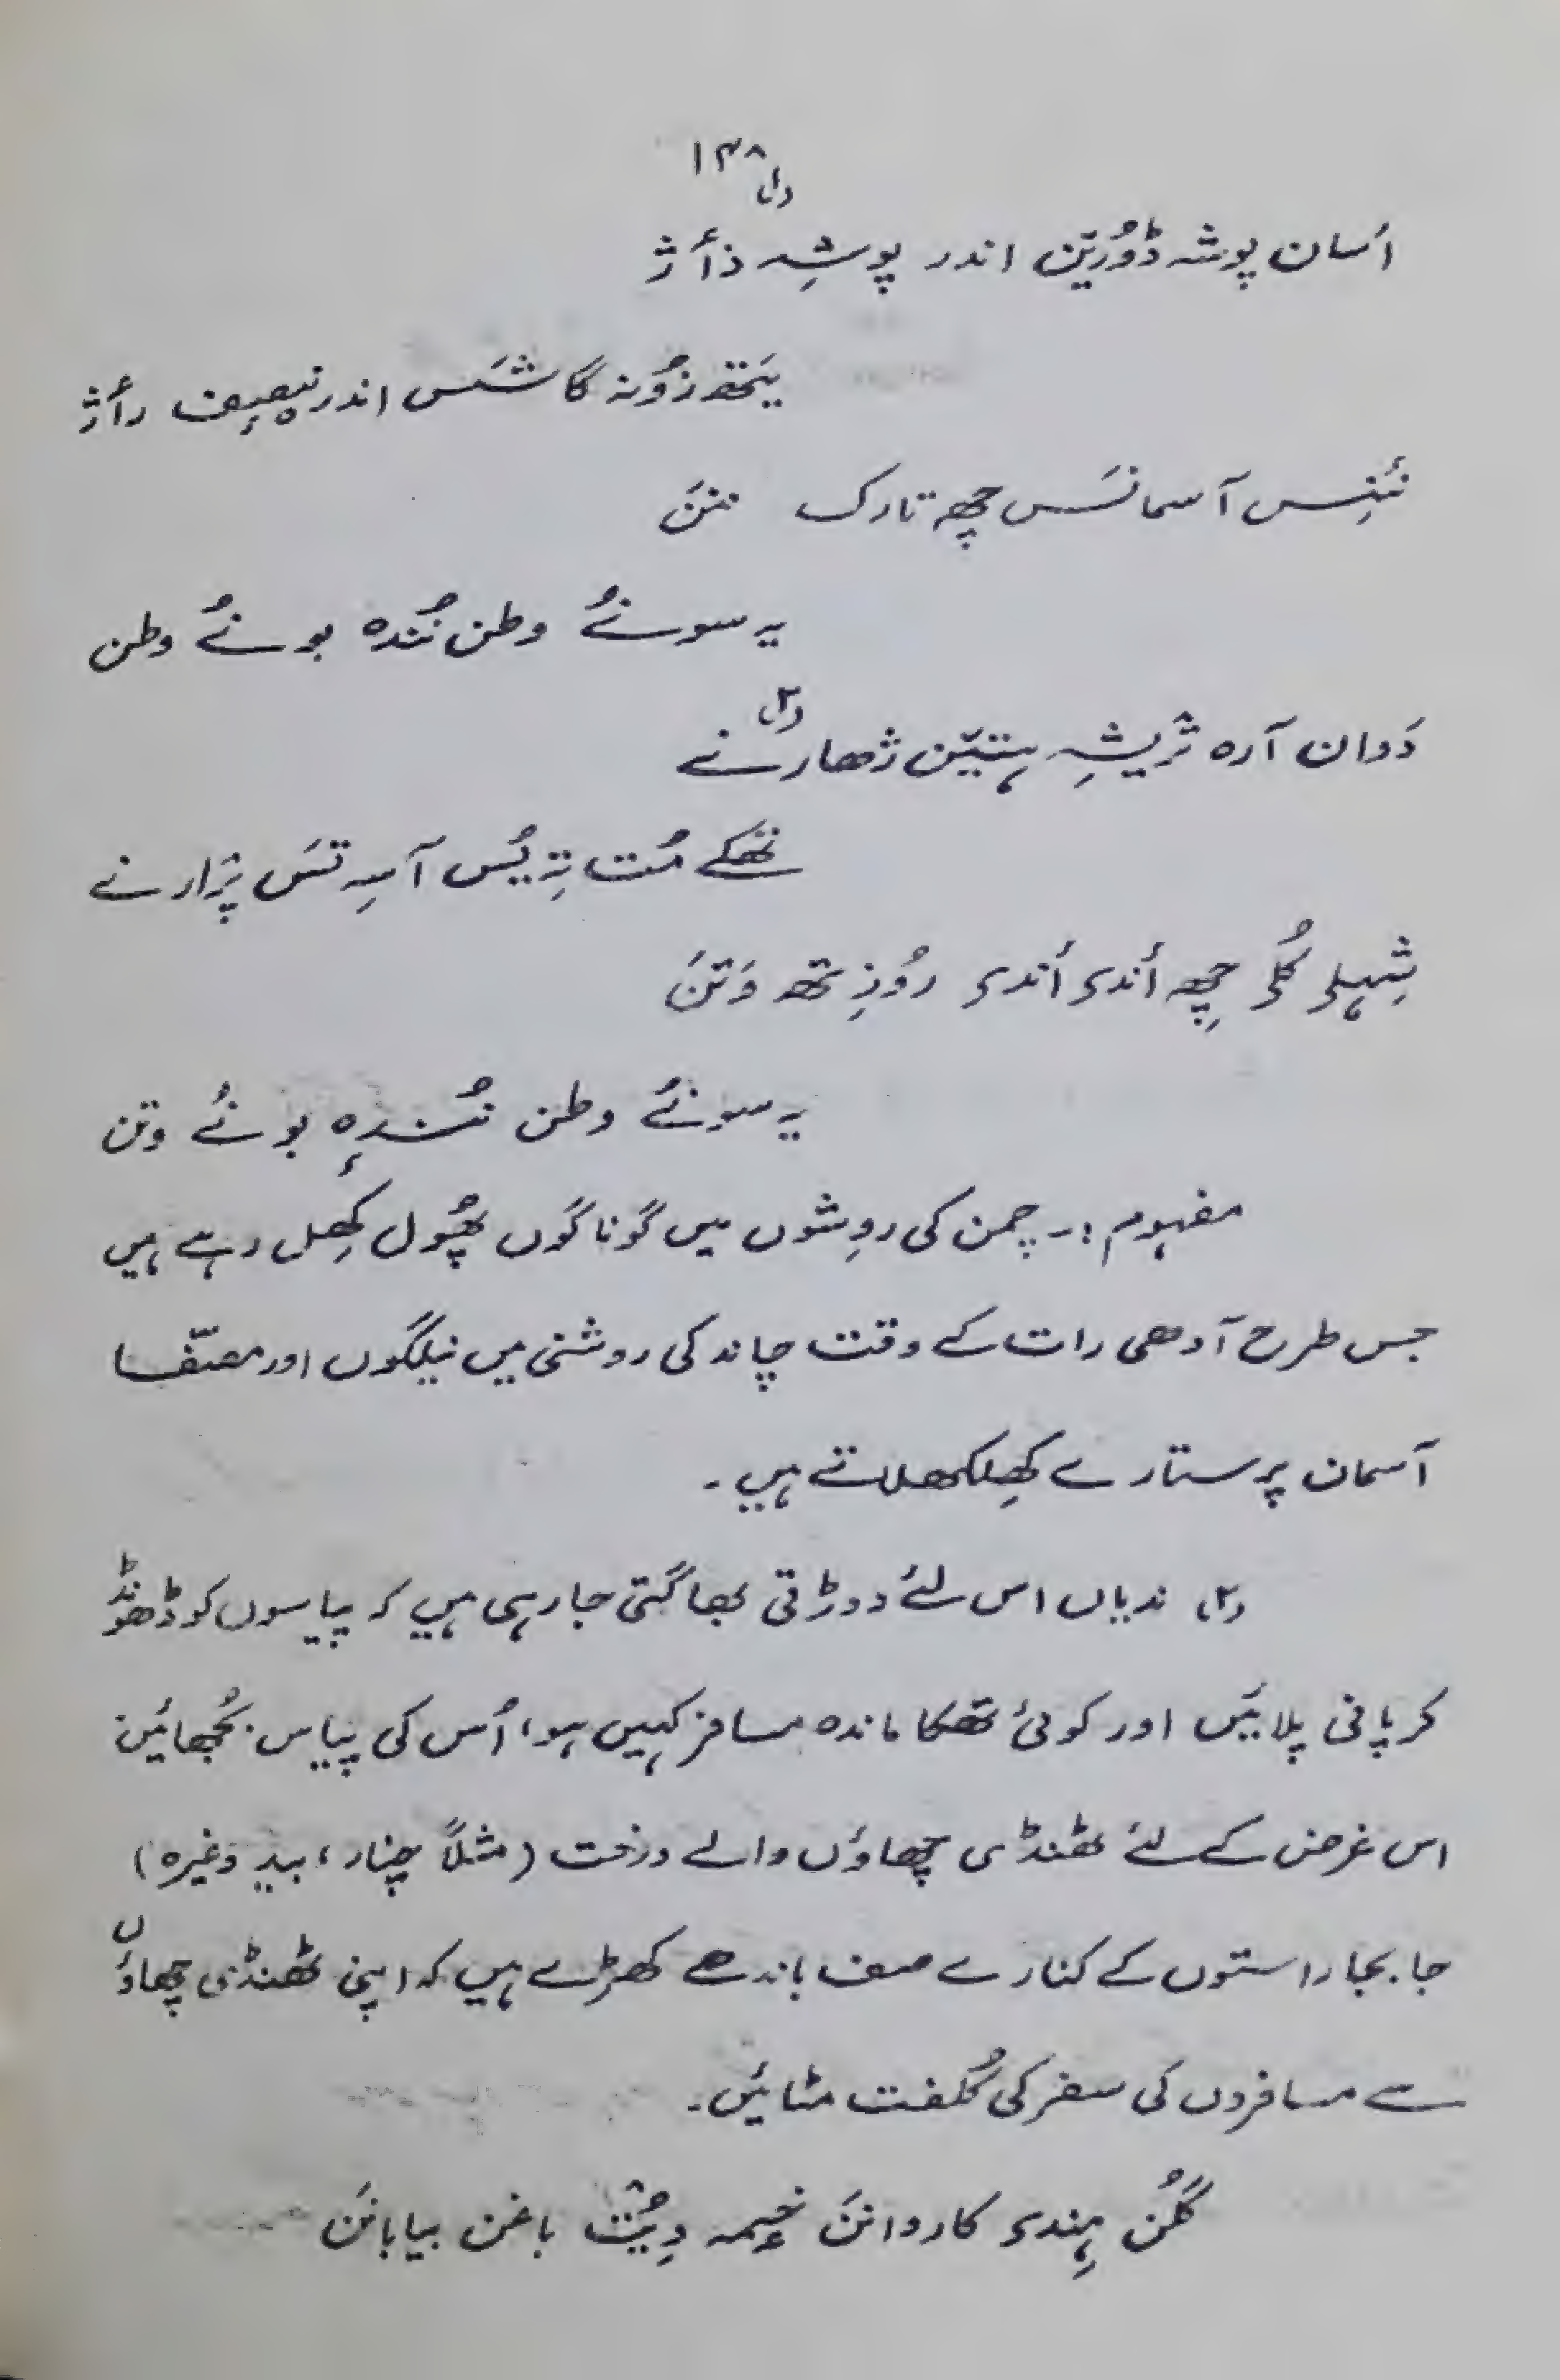 ۱۳۸
(۱)
اَسان پوشہ ڈۆرێن اندر پوشِہ ذأژ
یَتھ زوٗنہ گاشَس اندر نِصِف رأژ
نَنِس آسمانَس چھِ تارک ننَن
یہ سونُے وطن نُندہ بونُے وطن
(۲)
دَوان آرہ تریشِہ ہتێن ژھارنے
تھَکے مُت تہِ یُس آسہِ تَس پرٛارنے
شِہلۍ کُلۍ چھِ أندۍ أندۍ روٗزِتھ وَتَن
یہ سونُے وطن نُندہٕ بونُے وتن
مفہوم :۔ چمن کی روِشوں میں گوناگوں پھُول کھِل رہے ہیں
جس طرح آدھی رات کے وقت چاند کی روشنی میں نیلگوں اور مصفّا
آسمان پر ستارے کھِلکھلاتے ہیں ۔
(۲) ندیاں اس لئے دوڑتی بھاگتی جا رہی ہیں کہ پیاسوں کو ڈھونڈ
کر پانی پلائیں اور کوئی تھکا ماندہ مسافر کہیں ہو، اُس کی پیاس بُجھائیں
اس غرض کے لئے ٹھنڈی چھاؤں والے درخت (مثلاً چنار، بید وغیرہ)
جا بجا راستوں کے کنارے صف باندھے کھڑے ہیں کہ اپنی ٹھنڈی چھاؤں
سے مسافروں کی سفر کی کُلفت مٹائیں۔
گُلَن ہِندۍ کاروانَن خیمہ دِیُت باغن بیابانَن